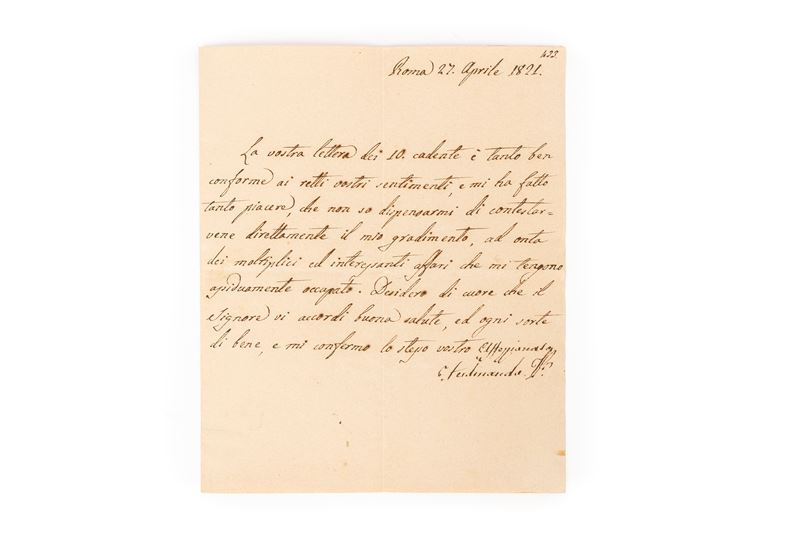 433
Roma 27. Aprile 1821.
La vostra lettera dei 10. cadente è tanto ben
conforme ai retti vostri sentimenti e mi ha fatto
tanto piacere, che non so dispensarmi di contestar=
vene direttamente il mio gradimento, ad onta
dei moltiplici ed interessanti affari che mi tengono
assiduamente occupato. Desidero di cuore che il
Signore vi accordi buona salute, ed ogni sorte
di bene, e mi confermo lo stesso vostro Affezionato
Ferdinando